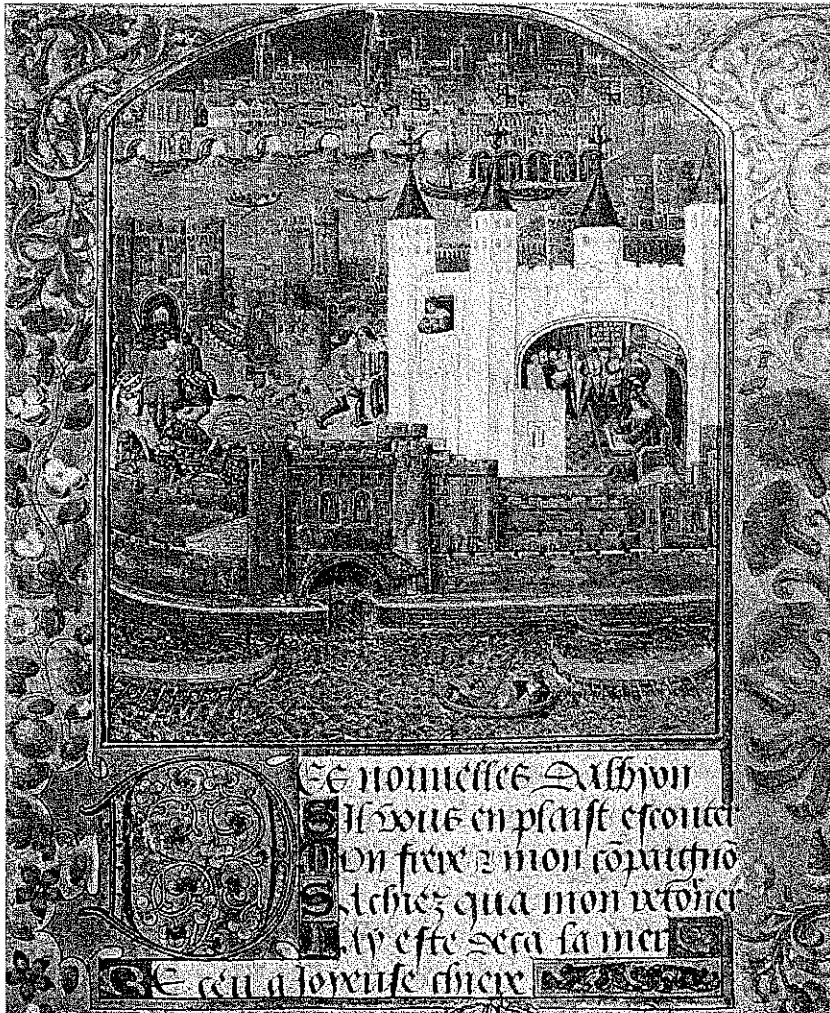 DEs nouuelles Dalbyon
SIl vous en plaist escouter
MOn frere & mon cõpaignõ
SAchiez qua mon
IAy este deca la mer
REceu a Joyeuse chiere